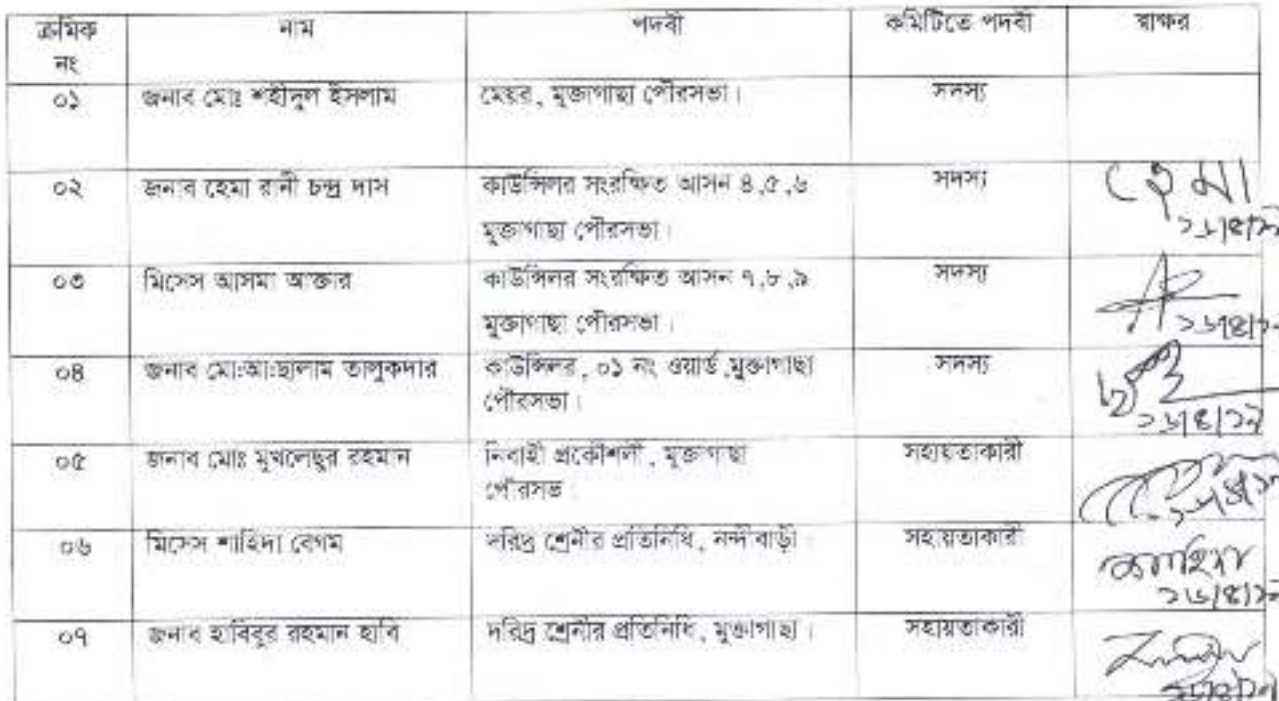 ক্রমিক নং নাম পদবী কমিটিতে পদবী স্বাক্ষর
০১ জনাব মোঃ শহীদুল ইসলাম মেয়র, মুক্তাগাছা পৌরসভা। সদস্য
০২ জনাব হেমা রানী চন্দ্র দাস কাউন্সিলর সংরক্ষিত আসন ৪,৫,৬ সদস্য
মুক্তাগাছা পৌরসভা।
হেমা
০৩ মিসেস আসমা আক্তার কাউন্সিলর সংরক্ষিত আসন ৭,৮,৯ সদস্য
মুক্তাগাছা পৌরসভা।
০৪ জনাব মো:আ:ছালাম তালুকদার কাউন্সিলর, ০১ নং ওয়ার্ড,মুক্তাগাছা সদস্য
পৌরসভা।
০৫ জনাব মোঃ মুখলেছুর রহমান নির্বাহী প্রকৌশলী, মুক্তাগাছা সহায়তাকারী
পৌরসভ
০৬ মিসেস শাহিদা বেগম দরিদ্র শ্রেনীর প্রতিনিধি, নন্দীবাড়ী। সহায়তাকারী
০৭ জনাব হাবিবুর রহমান হাবি দরিদ্র শ্রেনীর প্রতিনিধি, মুক্তাগাছা। সহায়তাকারী